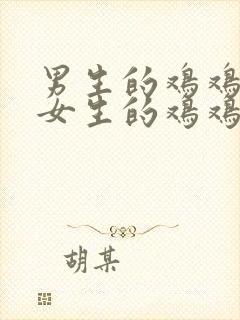 男生的鸡鸡
女生的鸡鸡
胡某